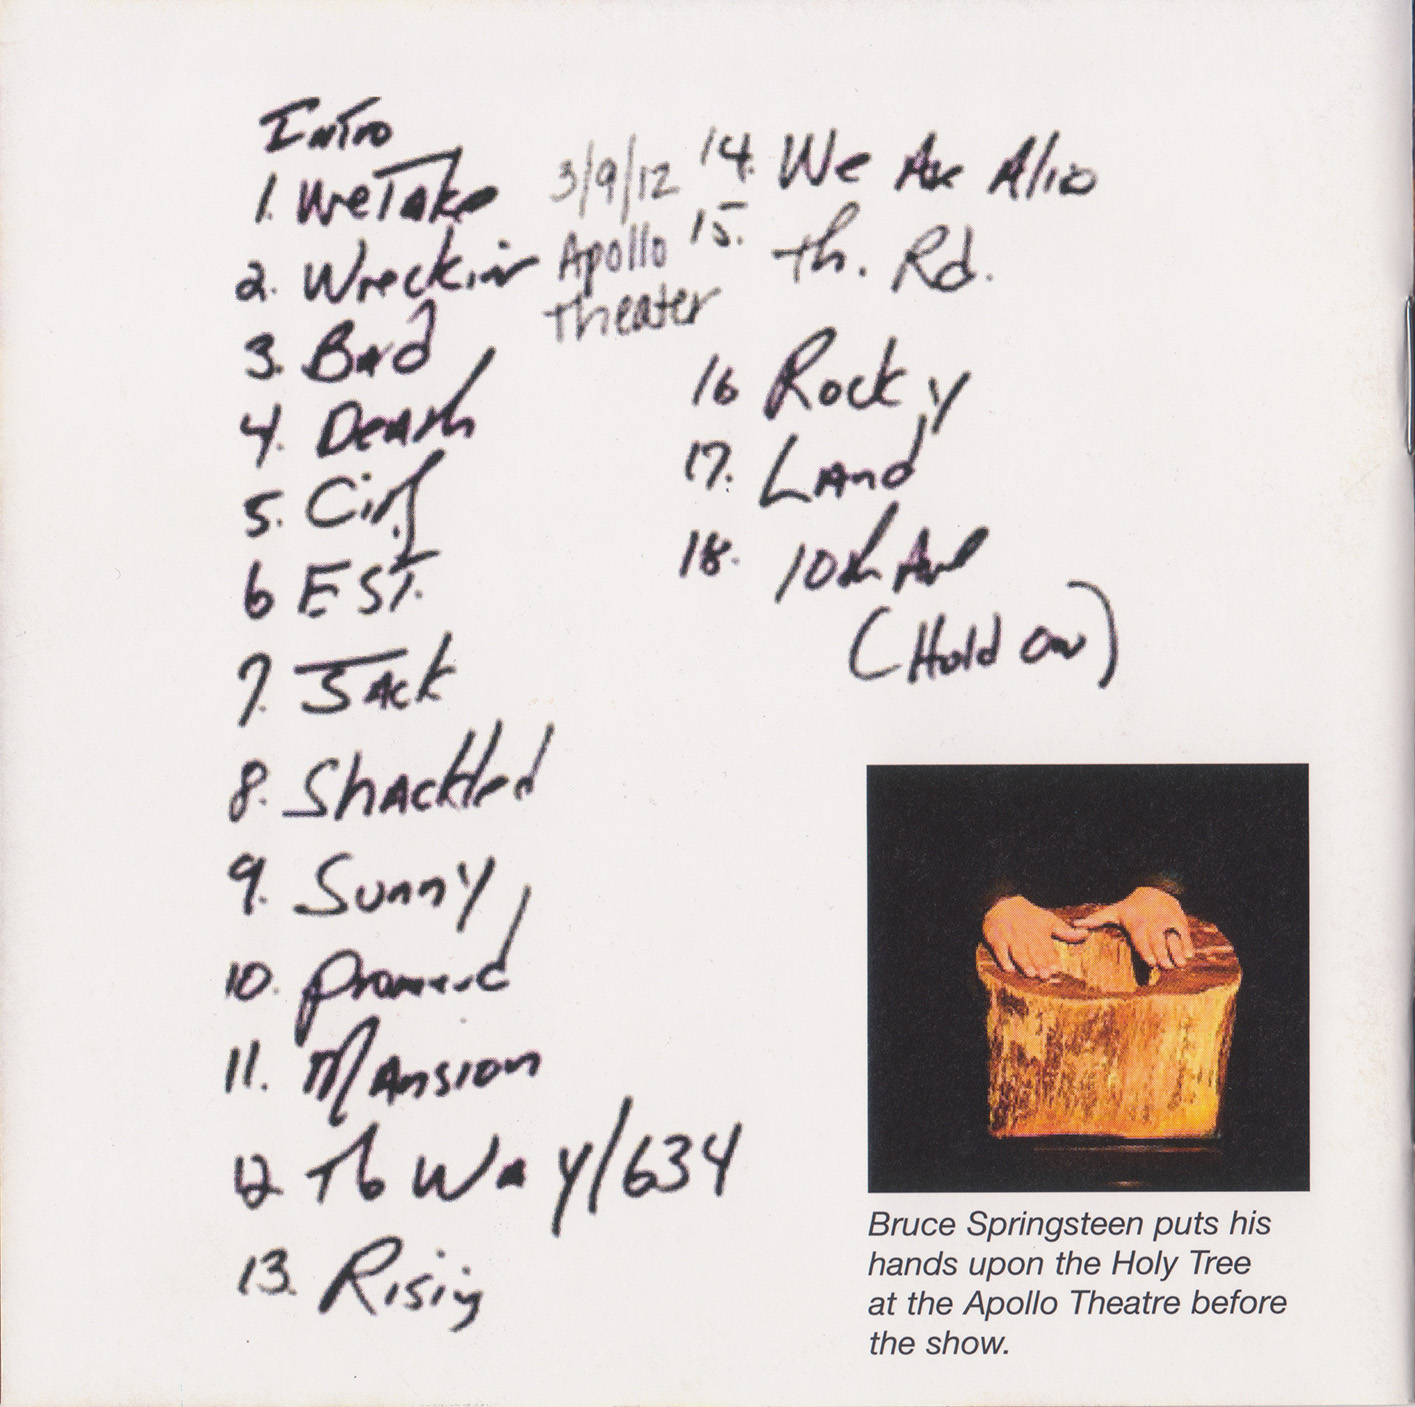 Intro
1. We Take
2. Wreckin
3. Bad
4. Death
5. City
6 E ST.
7. Jack
8. Shackled
9. Sunny
10. Promised
11. Mansion
12 Th Way/634
13. Rising
3/9/12
Apollo
Theater
14. We Are Alive
15. Th. Rd.
16 Rocky
17. Land
18. 10th Ave
(Hold on)
Bruce Springsteen puts his
hands upon the Holy Tree
at the Apollo Theatre before
the show.